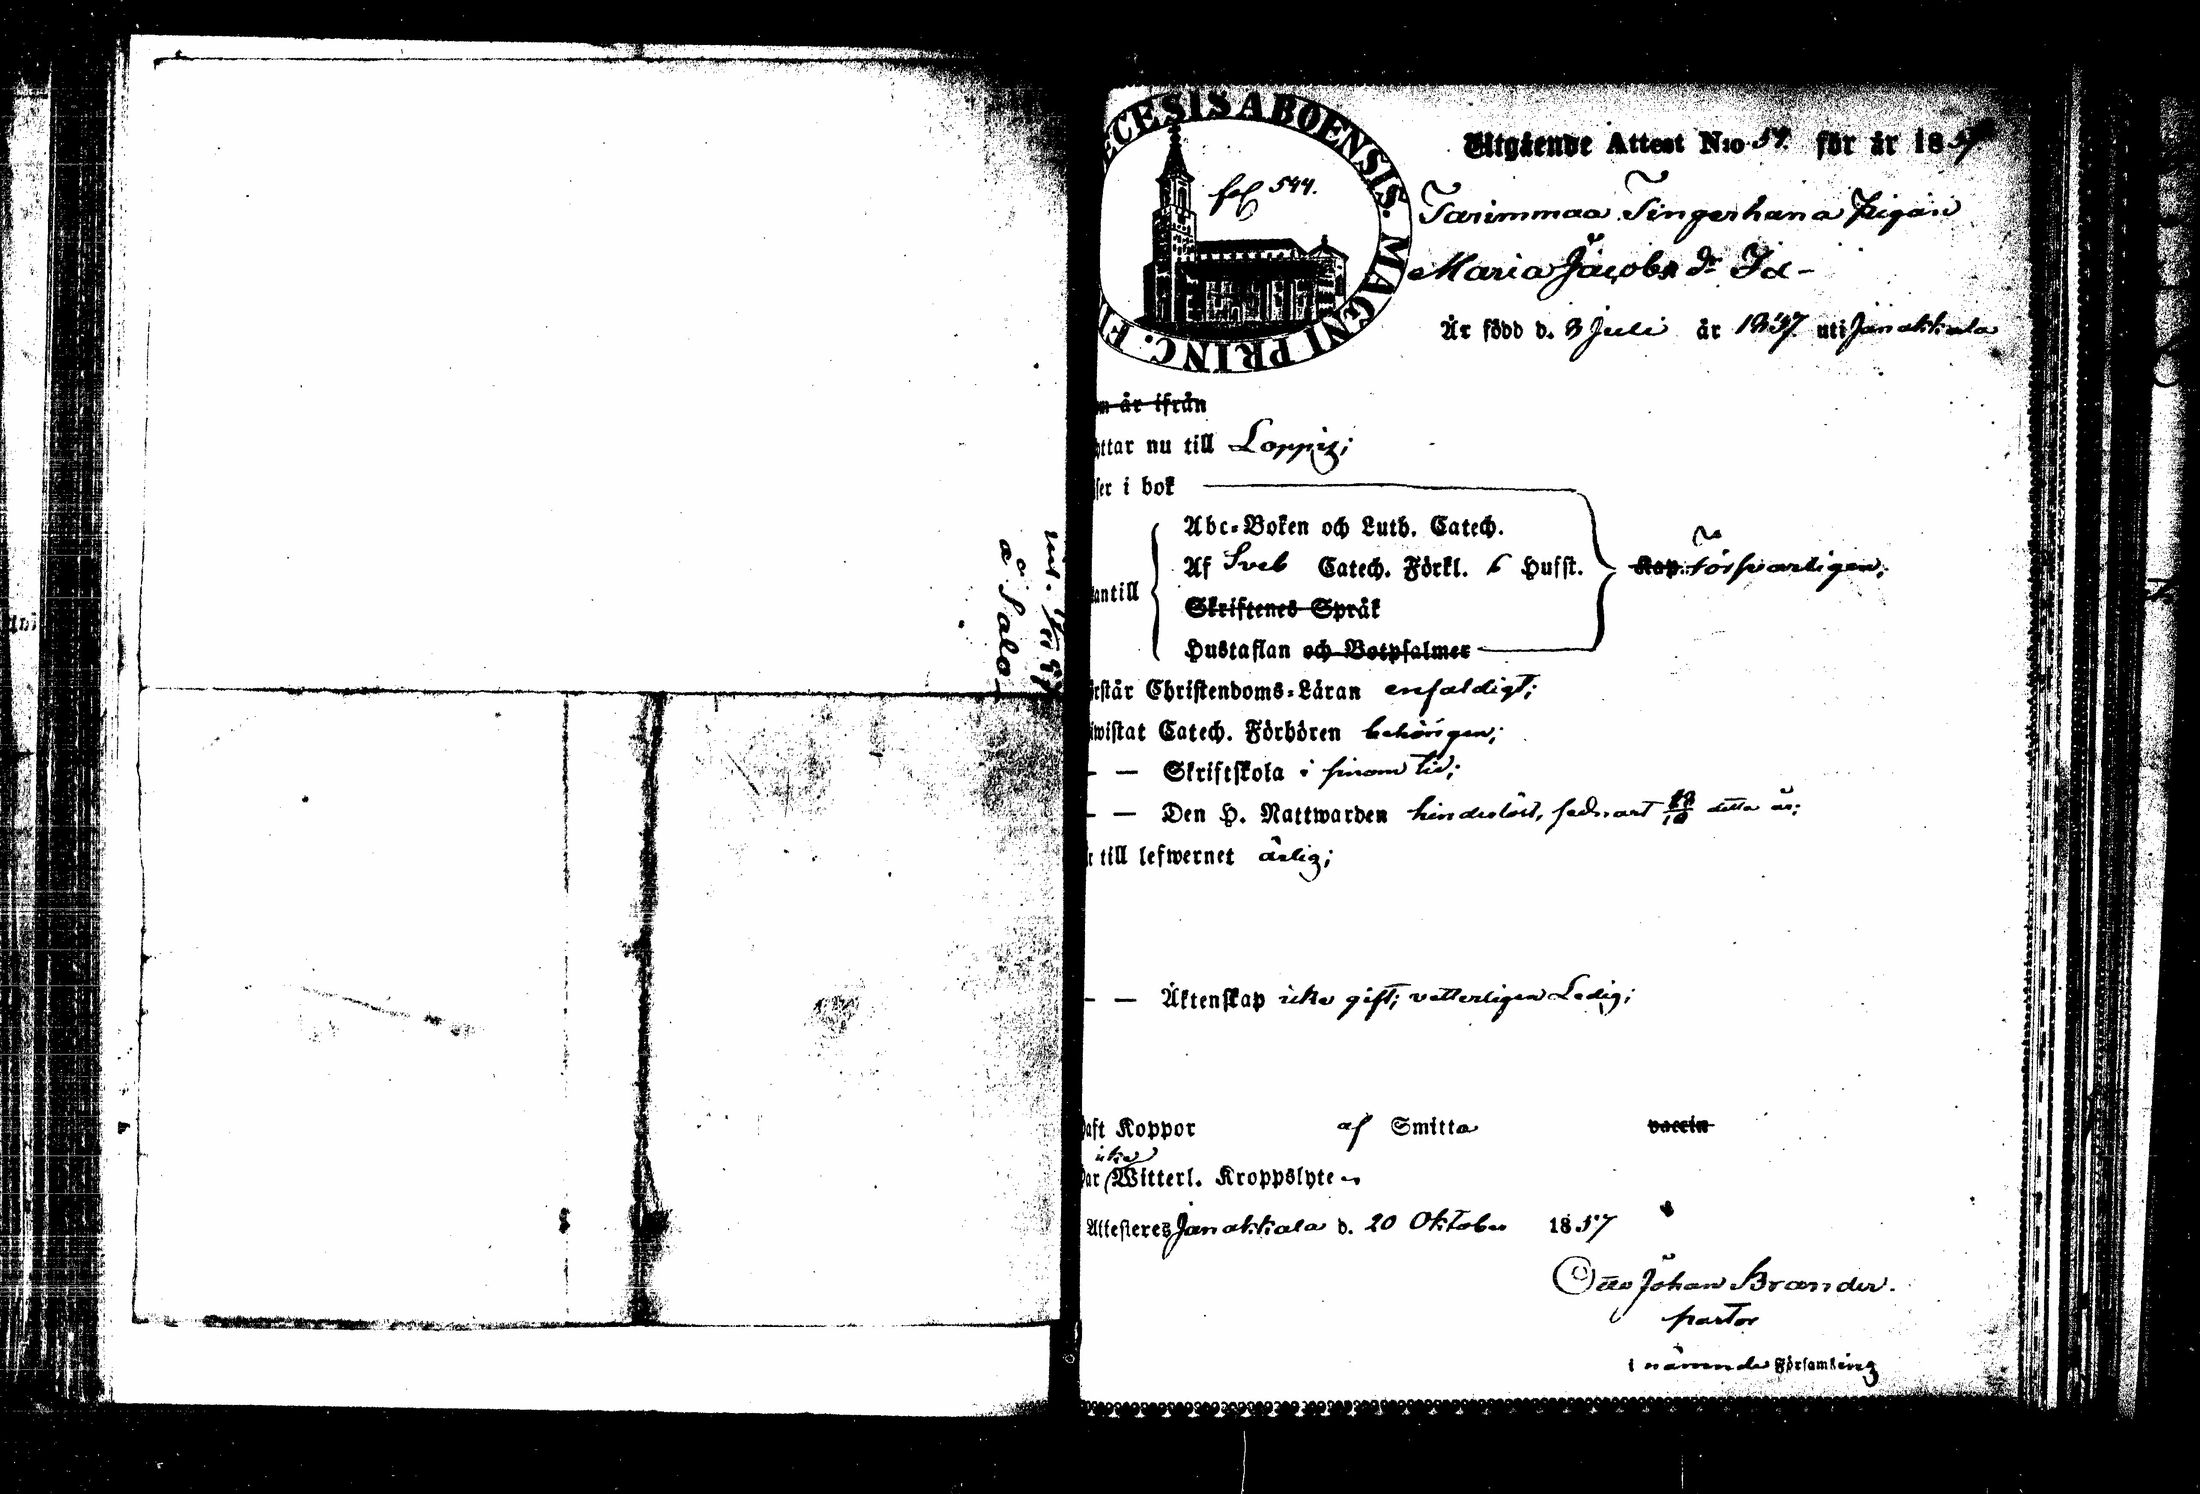 int. 1/11 57
å Salo
ECESIS ABOENSIS. MAGNI PRINC. FI
fol 544.
Utgående Attest N:o 57. för år 1857
Tarinmaa Tingerhana Pigan
Maria Jacobs dr Id-
Är född d. 3 Juli år 1837 uti Janakkala
m är ifrån
yttar nu till Loppis;
ser i bok
Abc-Boken och Luth. Catech.
Af Sveb Catech. Förkl. 6 Hufst.
Kap. försvarligen;
antill
Skriftenes Språk
Hustaflan och Botpsalmer
örstår Christendoms-Läran enfaldigt;
iwistat Catech. Förhören behörigen;
- — Skriftskola i sinom tid;
- — Den H. Nattwarden hinderlöst, sednast 18/10 detta år;
r till lefwernet ärlig;
- — Äktenskap icke gift; vetterligen Ledig;
haft Koppor af Smitta vaccin
icke
har Witterl. Kroppslyte
Attesteres Janakkala d. 20 Oktober 1857
Otto Johan Brander.
pastor
i nämnde Församling